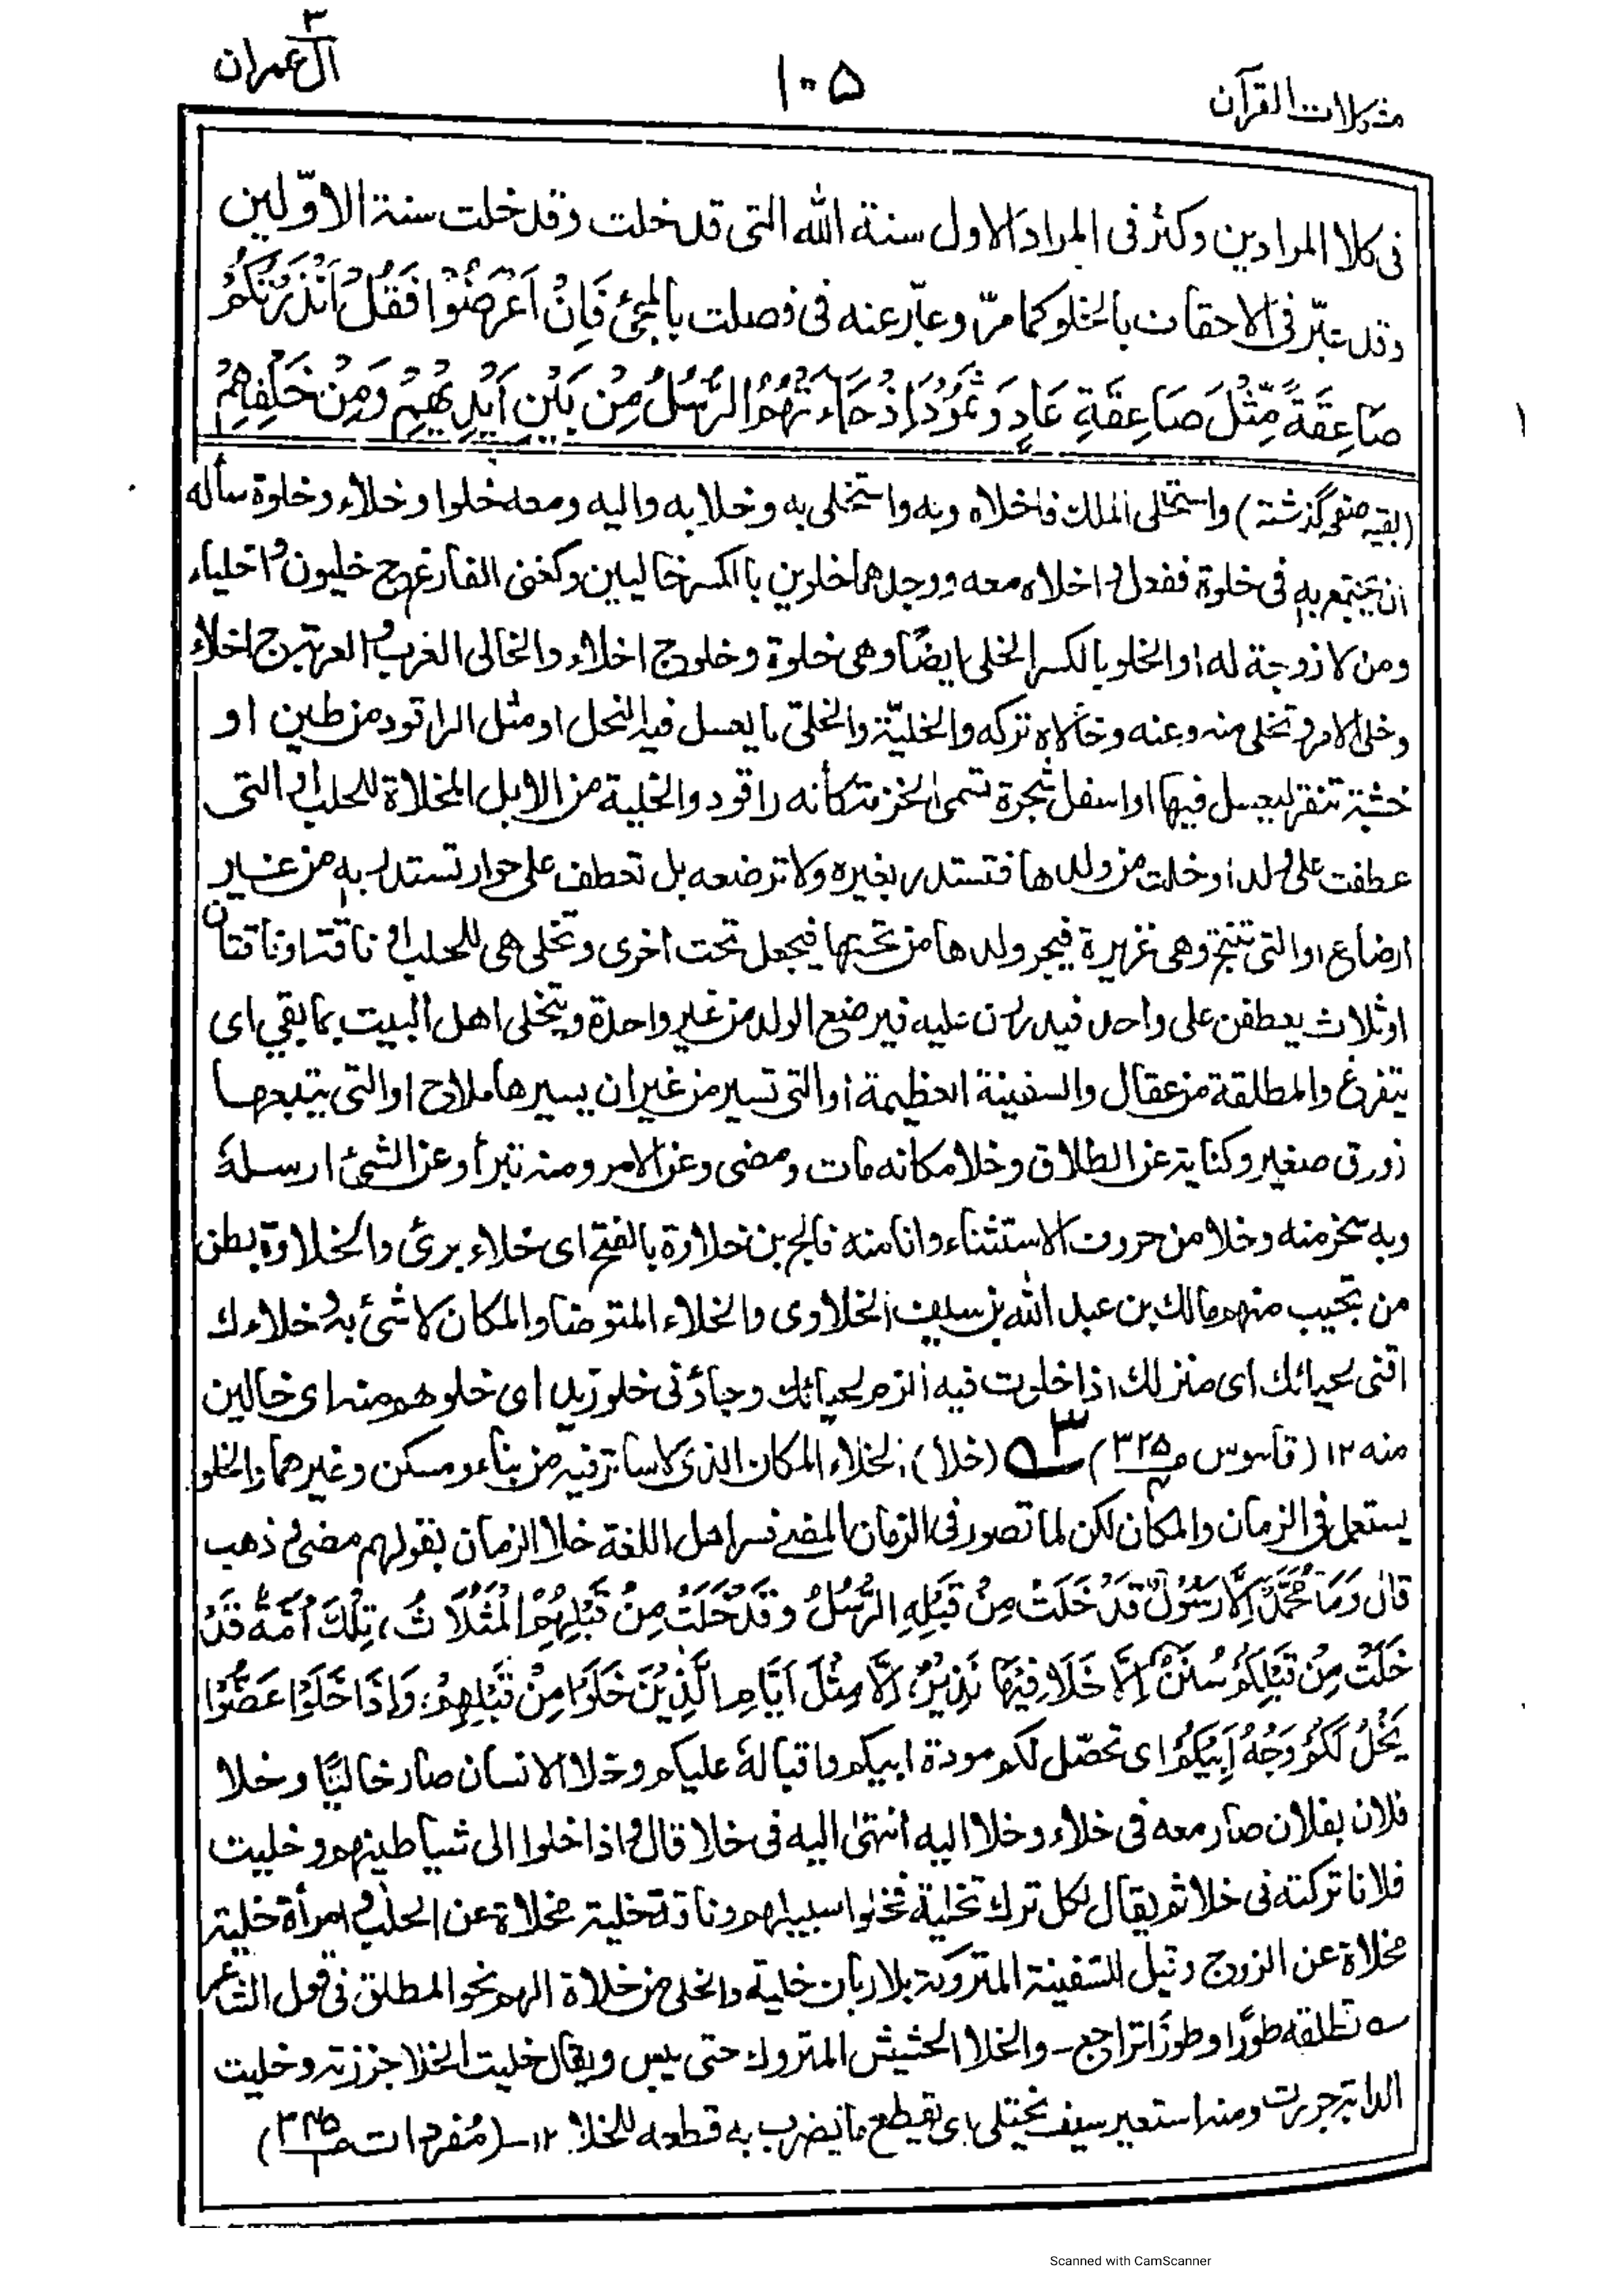 ٣
آل عمران
١٠٥
مشكلات القرآن
فى كلا المرادين وكثر فى المراد الاول سنة الله التى قد خلت وقد خلت سنة الاوّلين
وقد عبّر فى الاحقاف بالخلو كما مرّ وعبّر عنه فى فصلت بالمجئ فَاِنْ اَعْرَضُوْا فَقُلْ اَنْذَرْتُكُمْ
صَاعِقَةً مِّثْلَ صَاعِقَةِ عَادٍ وَثَمُوْدَ اِذْ جَاءَتْهُمُ الرُّسُلُ مِنْ بَيْنِ اَيْدِيْهِمْ وَمِنْ خَلْفِهِمْ
(بقيه صفحہ گذشتہ) واستخلى الملك فاخلاه وبه واستخلى به وخلا به واليه ومعه خلوا وخلاء وخلوة سأله
ان يجتمع به فى خلوة ففعل واخلاه معه ووجدهما خلوين بالكسر خاليين وكغنى الفارغ ج خليون واخلياء
ومن لا زوجة له او الخلو بالكسر الخلى ايضًا وهى خلوة وخلو ج اخلاء والخالى العزب والعزبة ج اخلاء
وخلى الامر وتخلى منه وعنه وخالاه تركه والخليّة والخلىّ ما يعسل فيه النحل او مثل الراقود من طين او
خشبة تنقر ليعسل فيها او اسفل شجرة تسمى الخزمة كأنه راقود والخلية من الابل المخلاة للحلب او التى
عطفت على ولد او خلت من ولدها فتستدر بغيره ولا ترضعه بل تعطف على حوار تستدر به من غير
ارضاع او التى تنتج وهى غزيرة فيجر ولدها من تحتها فيجعل تحت اخرى وتخلى هى للحلب او ناقة او ناقتان
او ثلاث يعطفن على واحد فيدررن عليه فيرضع الولد من غير واحدة ويتخلى اهل البيت بما بقي اى
يتفرغ والمطلقة من عقال والسفينة العظيمة او التى تسير من غير ان يسيرها ملاح او التى يتبعها
زورق صغير وكناية عن الطلاق وخلا مكانه مات ومضى وعن الامر ومنه تبرأ وعن الشئ ارسله
وبه سخر منه وخلا من حروف الاستثناء وانا منه فالج بن خلاوة بالفتح اى خلاء برئ والخلاوة بطن
من تجيب منهم مالك بن عبد الله بن سيف الخلاوى والخلاء المتوضأ والمكان لا شئ به وخلاءك
اقنى لحيائك اى منزلك اذا خلوت فيه الزم لحيائك وجاؤنى خلو زيد اى خلوهم منه اى خالين
منه ١٢ (قاموس ص ٣٢٥ ٤) ٣ (خلا) الخلاء المكان الذى لا ساتر فيه من بناء ومسكن وغيرهما والخلو
يستعمل فى الزمان والمكان لكن لما تصور فى الزمان المضى فسر اهل اللغة خلا الزمان بقولهم مضى وذهب
قال وَمَا مُحَمَّدٌ اِلَّا رَسُوْلٌ قَدْ خَلَتْ مِنْ قَبْلِهِ الرُّسُلُ وقَدْ خَلَتْ مِنْ قَبْلِهِمُ الْمَثُلَاتُ، تِلْكَ اُمَّةٌ قَدْ
خَلَتْ مِنْ قَبْلِكُمْ سُنَنٌ اِلَّا خَلَا فِيْهَا نَذِيْرٌ، اِلَّا مِثْلَ اَيَّامِ الَّذِيْنَ خَلَوْا مِنْ قَبْلِهِمْ، وَاِذَا خَلَوْا عَضُّوْا
يَخْلُ لَكُمْ وَجْهُ اَبِيْكُمْ اى تحصّل لكم مودة ابيكم واقباله عليكم وخلا الانسان صار خاليًا وخلا
فلان بفلان صار معه فى خلاء وخلا اليه انتهٰى اليه فى خلا قال واذا خلوا الى شياطينهم وخليت
فلانا تركته فى خلا ثم يقال لكل ترك تخلية فخلوا سبيلهم وناقة خلية مخلاة عن الحلب وامرأة خلية
مخلاة عن الزوج وقيل للسفينة المتروكة بلا ربان خلية والخلى من خلاة الهم نحو المطلق فى قول الشاعر
تطلقه طورًا وطورًا تراجع ـ والخلا الحشيش المتروك حتى يبس ويقال خليت الخلا جززته وخليت
الدابة جررت ومنه استعير سيف يختلى اى يقطع ما يضرب به قطعه للخلا ١٢ـ (مُفردات ص )
Scanned with CamScanner